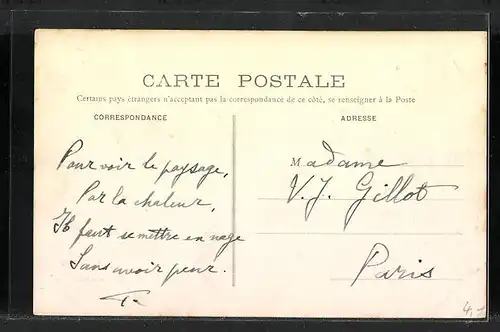 CARTE POSTALE
Certains pays étrangers n'acceptant pas la correspondance de ce côté, se renseigner à la Poste
CORRESPONDANCE
ADRESSE
Pour voir le paysage,
Par la chaleur,
Il faut se mettre en nage
Sans avoir peur.
Madame
V. J. Gillot
Paris